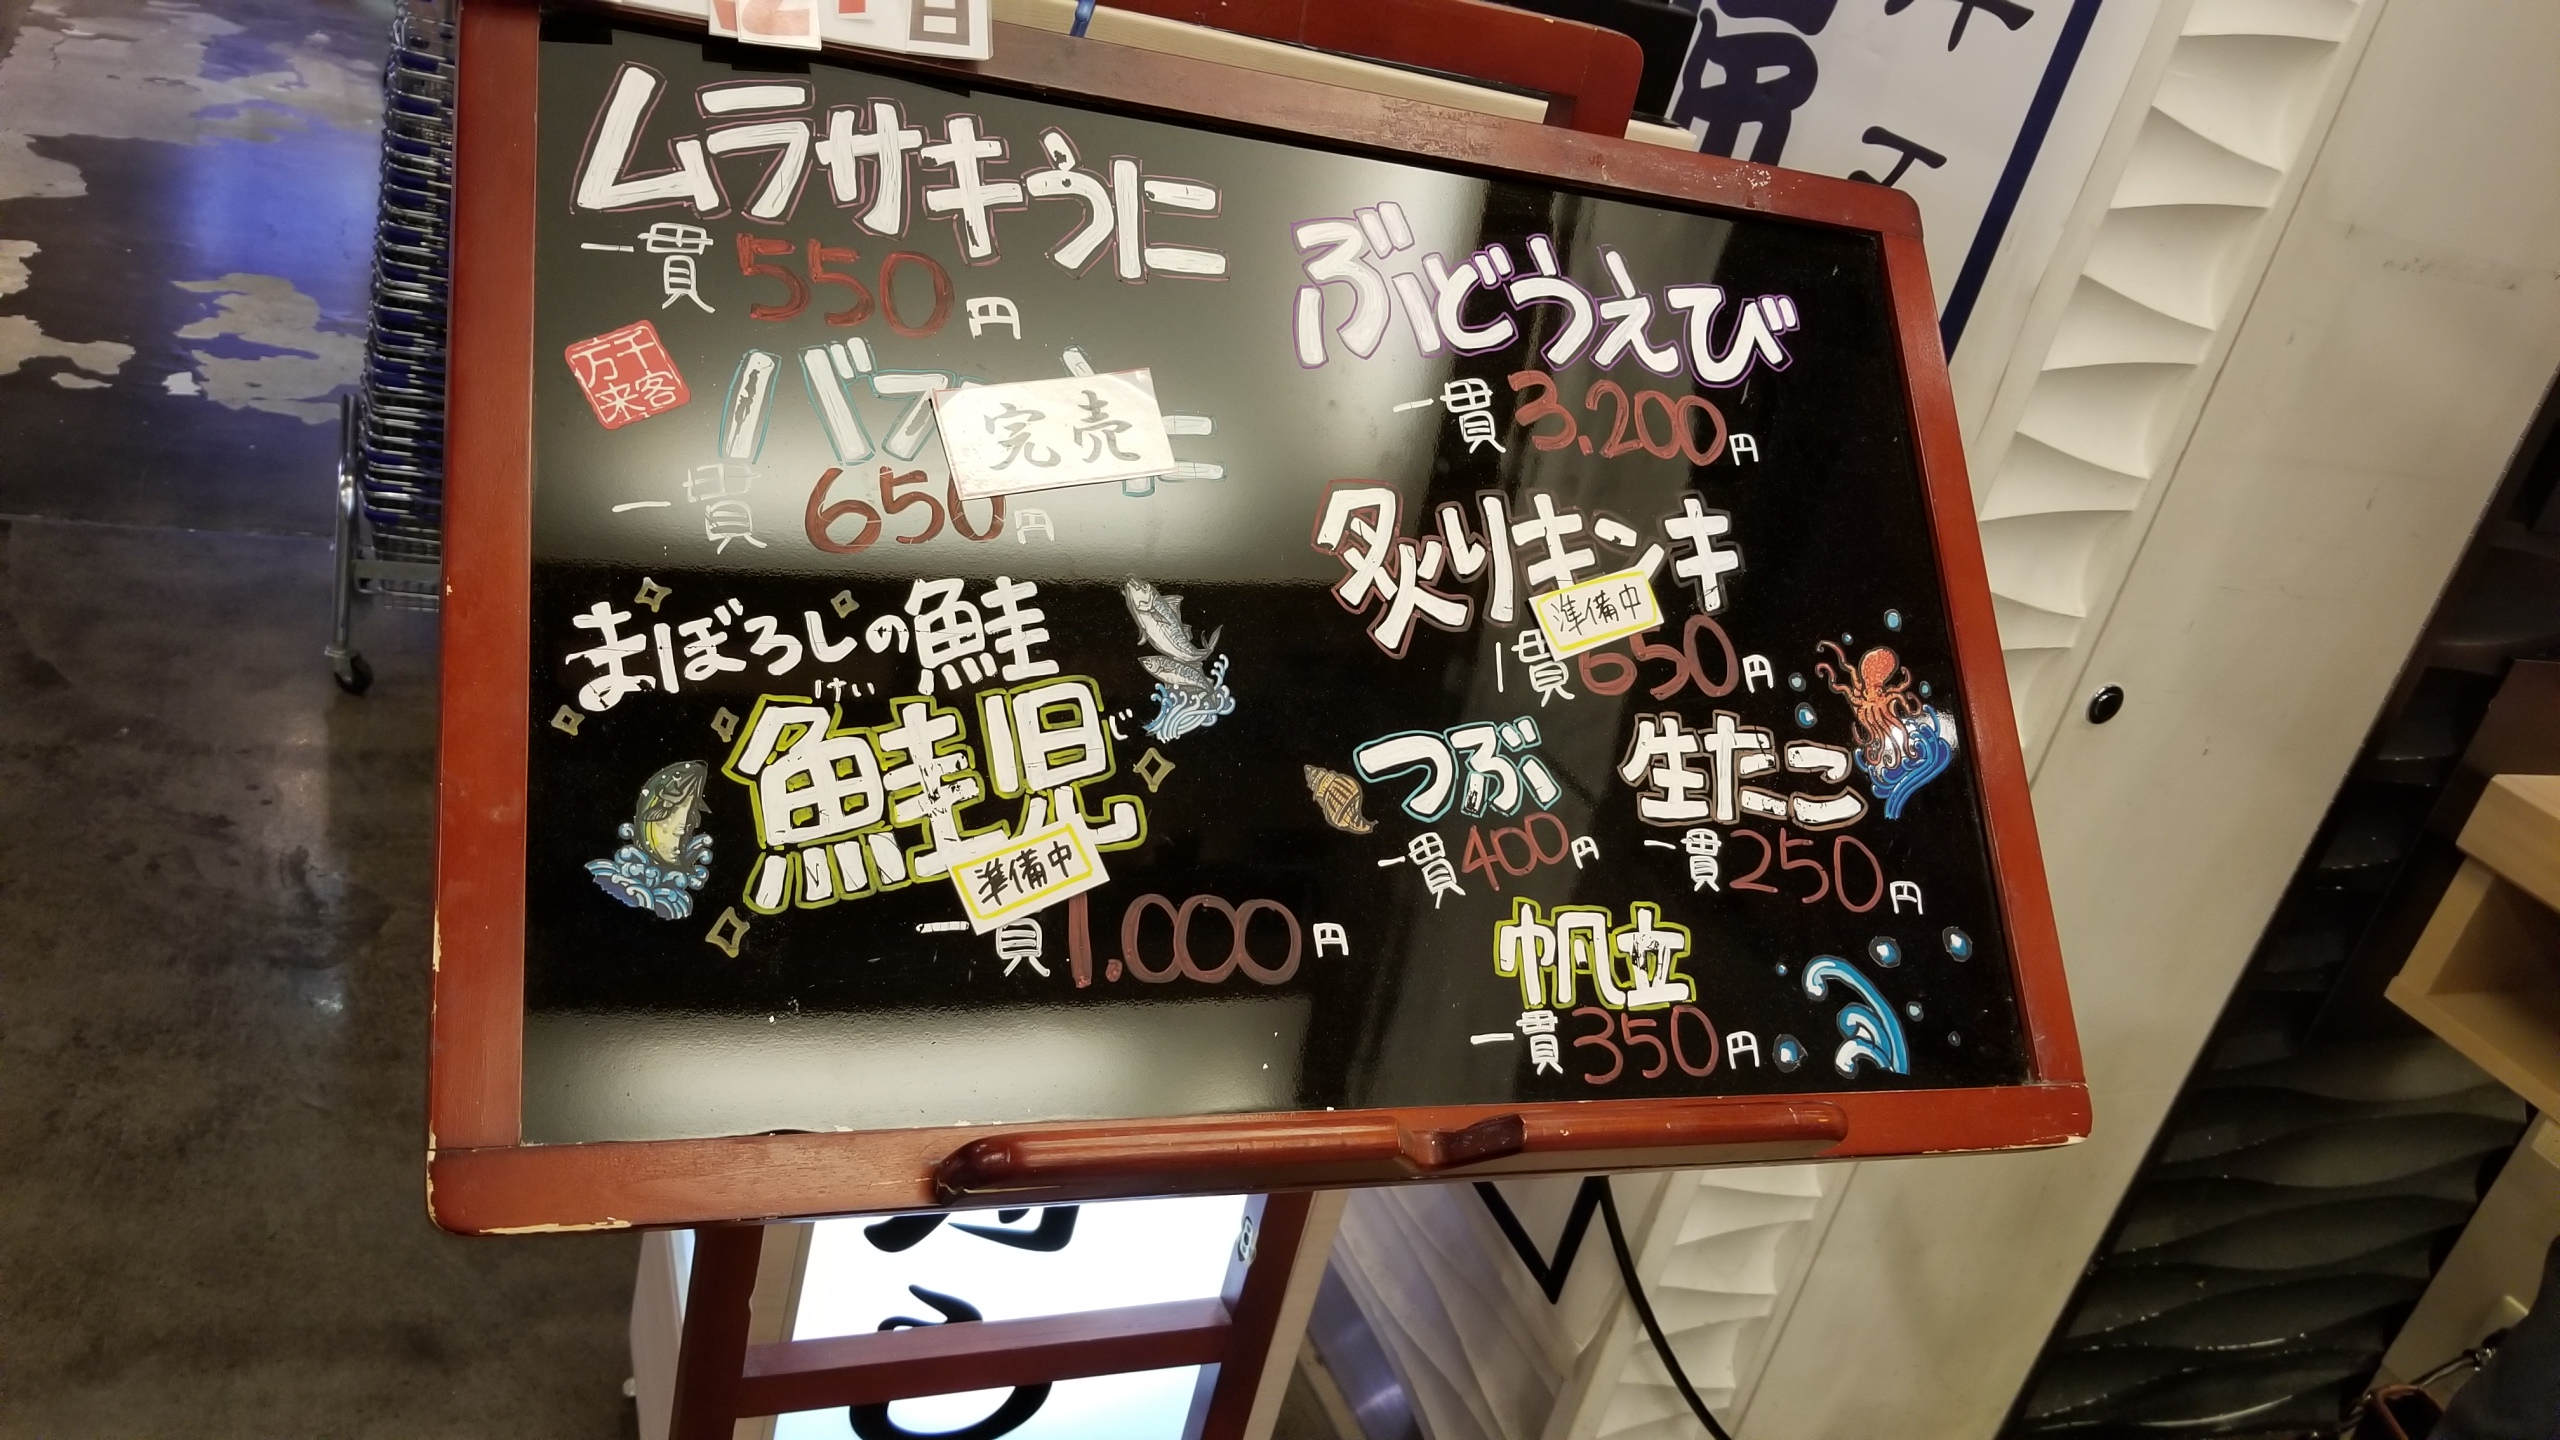 日
ムラサキうに
一貫 550円
千客
万来
バフ
に
完売
一貫 650円
まぼろしの鮭
けい じ
鮭児
準備中
一貫 1.000円
ぶどうえび
一貫 3.200円
炙りキンキ
準備中
1貫 650円
つぶ
一貫 400円
生たこ
一貫 250円
帆立
一貫 350円